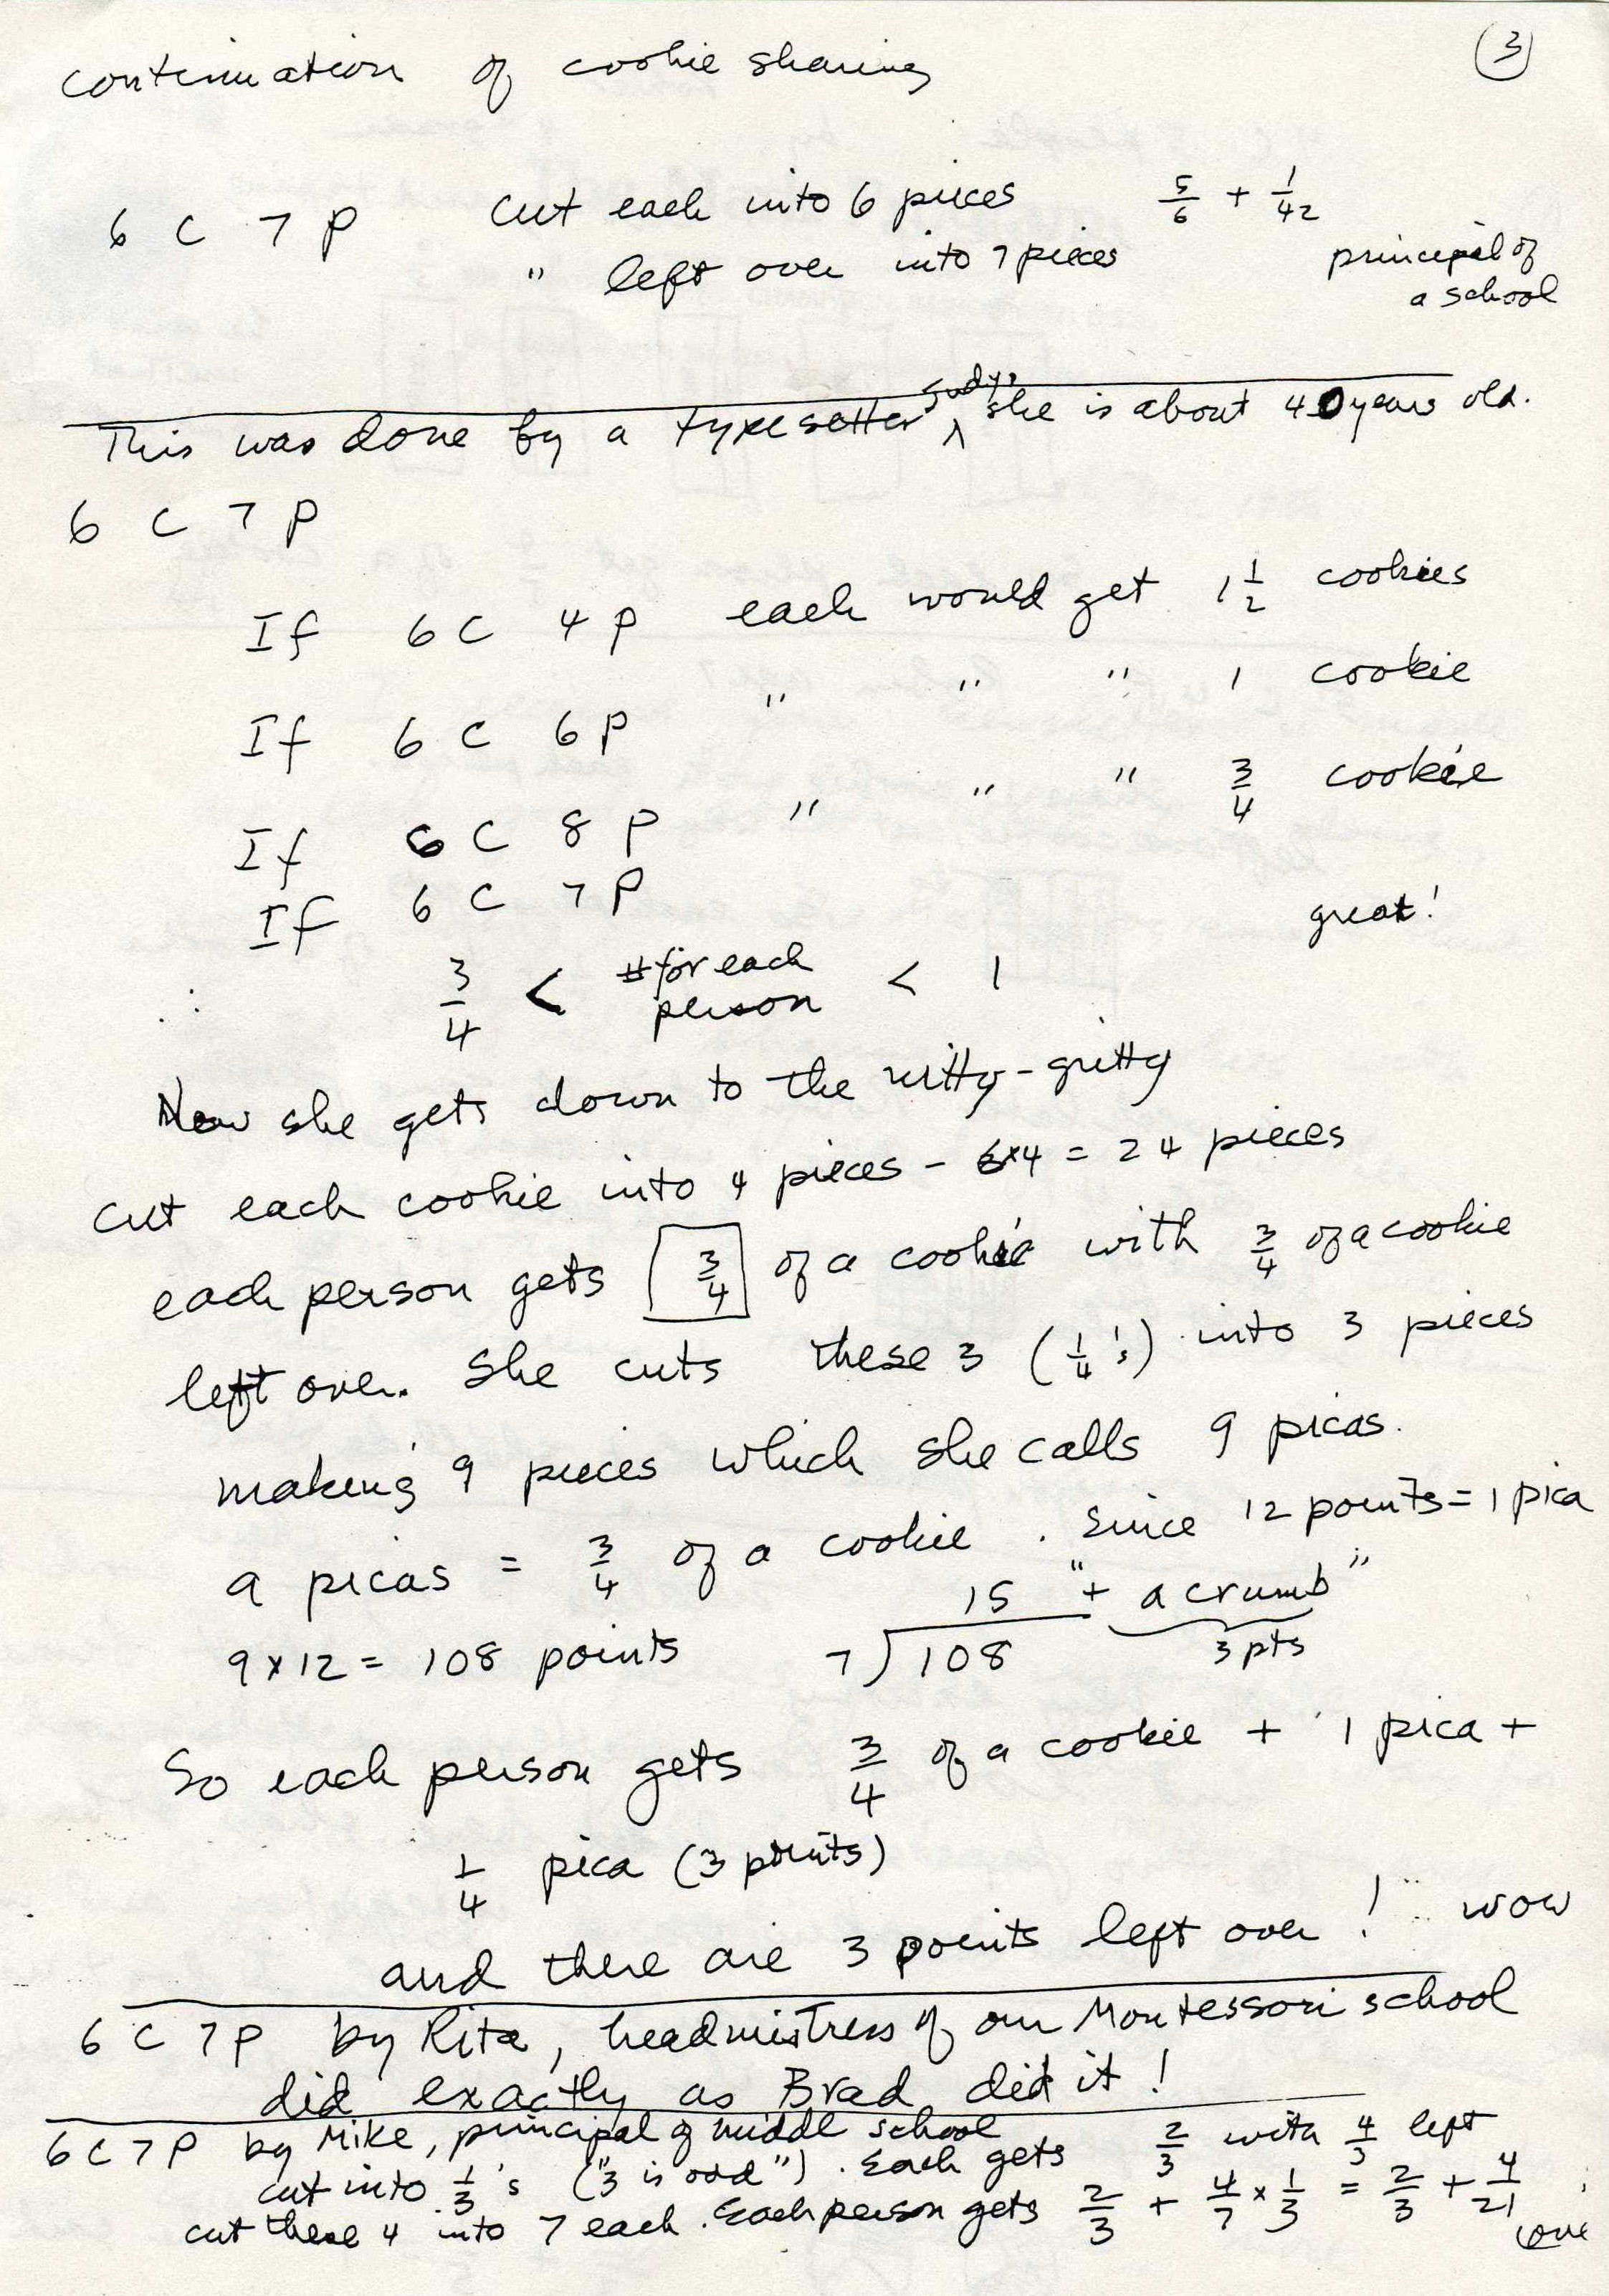 continuation of cookie sharing ③
6 C 7 P cut each into 6 pieces 5/6 + 1/42
" left over into 7 pieces principal of
a school
This was done by a typesetter ^ Judy, she is about 40 years old.
6 C 7 P
If 6 C 4 P each would get 1 1/2 cookies
If 6 C 6 P " " " 1 cookie
If 6 C 8 P " " " 3/4 cookie
If 6 C 7 P great!
∴ 3/4 < # for each person < 1
Now she gets down to the nitty-gritty
cut each cookie into 4 pieces - 6x4 = 24 pieces
each person gets 3/4 of a cookie with 3/4 of a cookie
left over. She cuts these 3 (1/4's) into 3 pieces
making 9 pieces which she calls 9 picas.
9 picas = 3/4 of a cookie. Since 12 points = 1 pica
15 "+ a crumb"
9 x 12 = 108 points 7)108 3 pts
So each person gets 3/4 of a cookie + 1 pica +
1/4 pica (3 points)
and there are 3 points left over! wow
6 C 7 P by Rita, headmistress of our Montessori school
did exactly as Brad did it!
6 C 7 P by Mike, principal of middle school
cut into 1/3's ("3 is odd"). Each gets 2/3 with 4/3 left
cut these 4 into 7 each. Each person gets 2/3 + 4/7 x 1/3 = 2/3 + 4/21